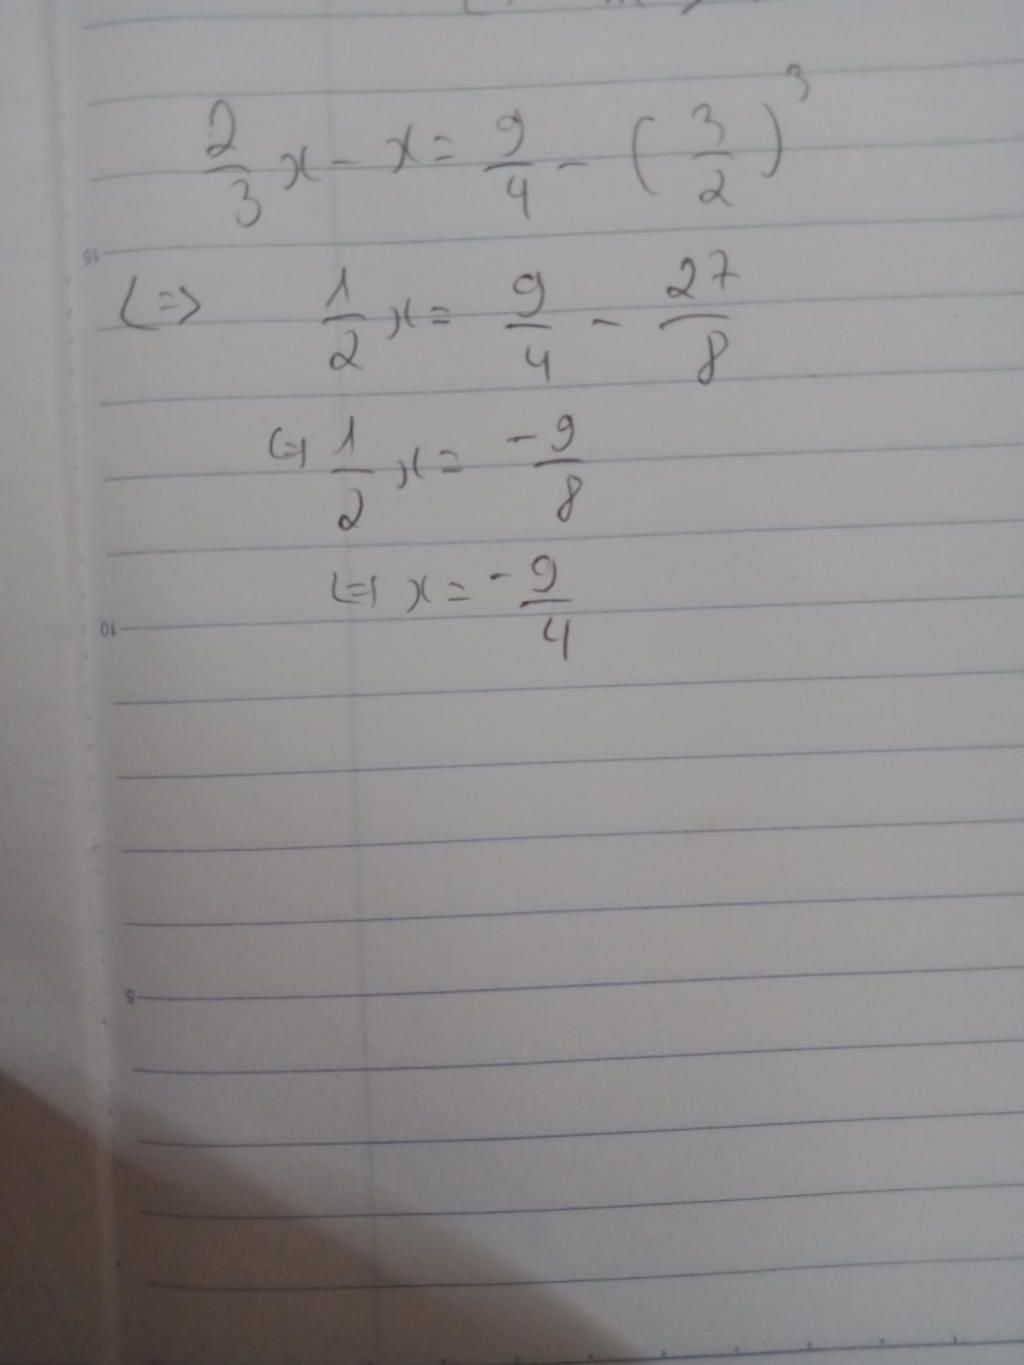 2/3 x - x = 9/4 - (3/2)^3
15
<=> 1/2 x = 9/4 - 27/8
<=> 1/2 x = -9/8
<=> x = -9/4
10
5